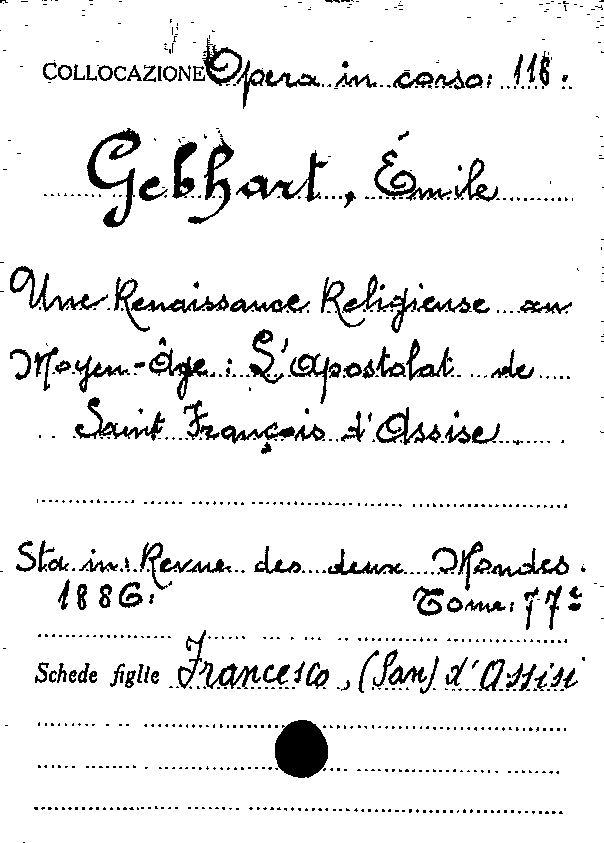 COLLOCAZIONE Opera in corso: 118.
Gebhart, Émile
Une Renaissance Religieuse au
Moyen-Âge: L'Apostolat de
Saint François d'Assise
Sta in: Revue des deux Mondes.
1886. Tome: 77e
Schede figlie Francesco, (San) d'Assisi